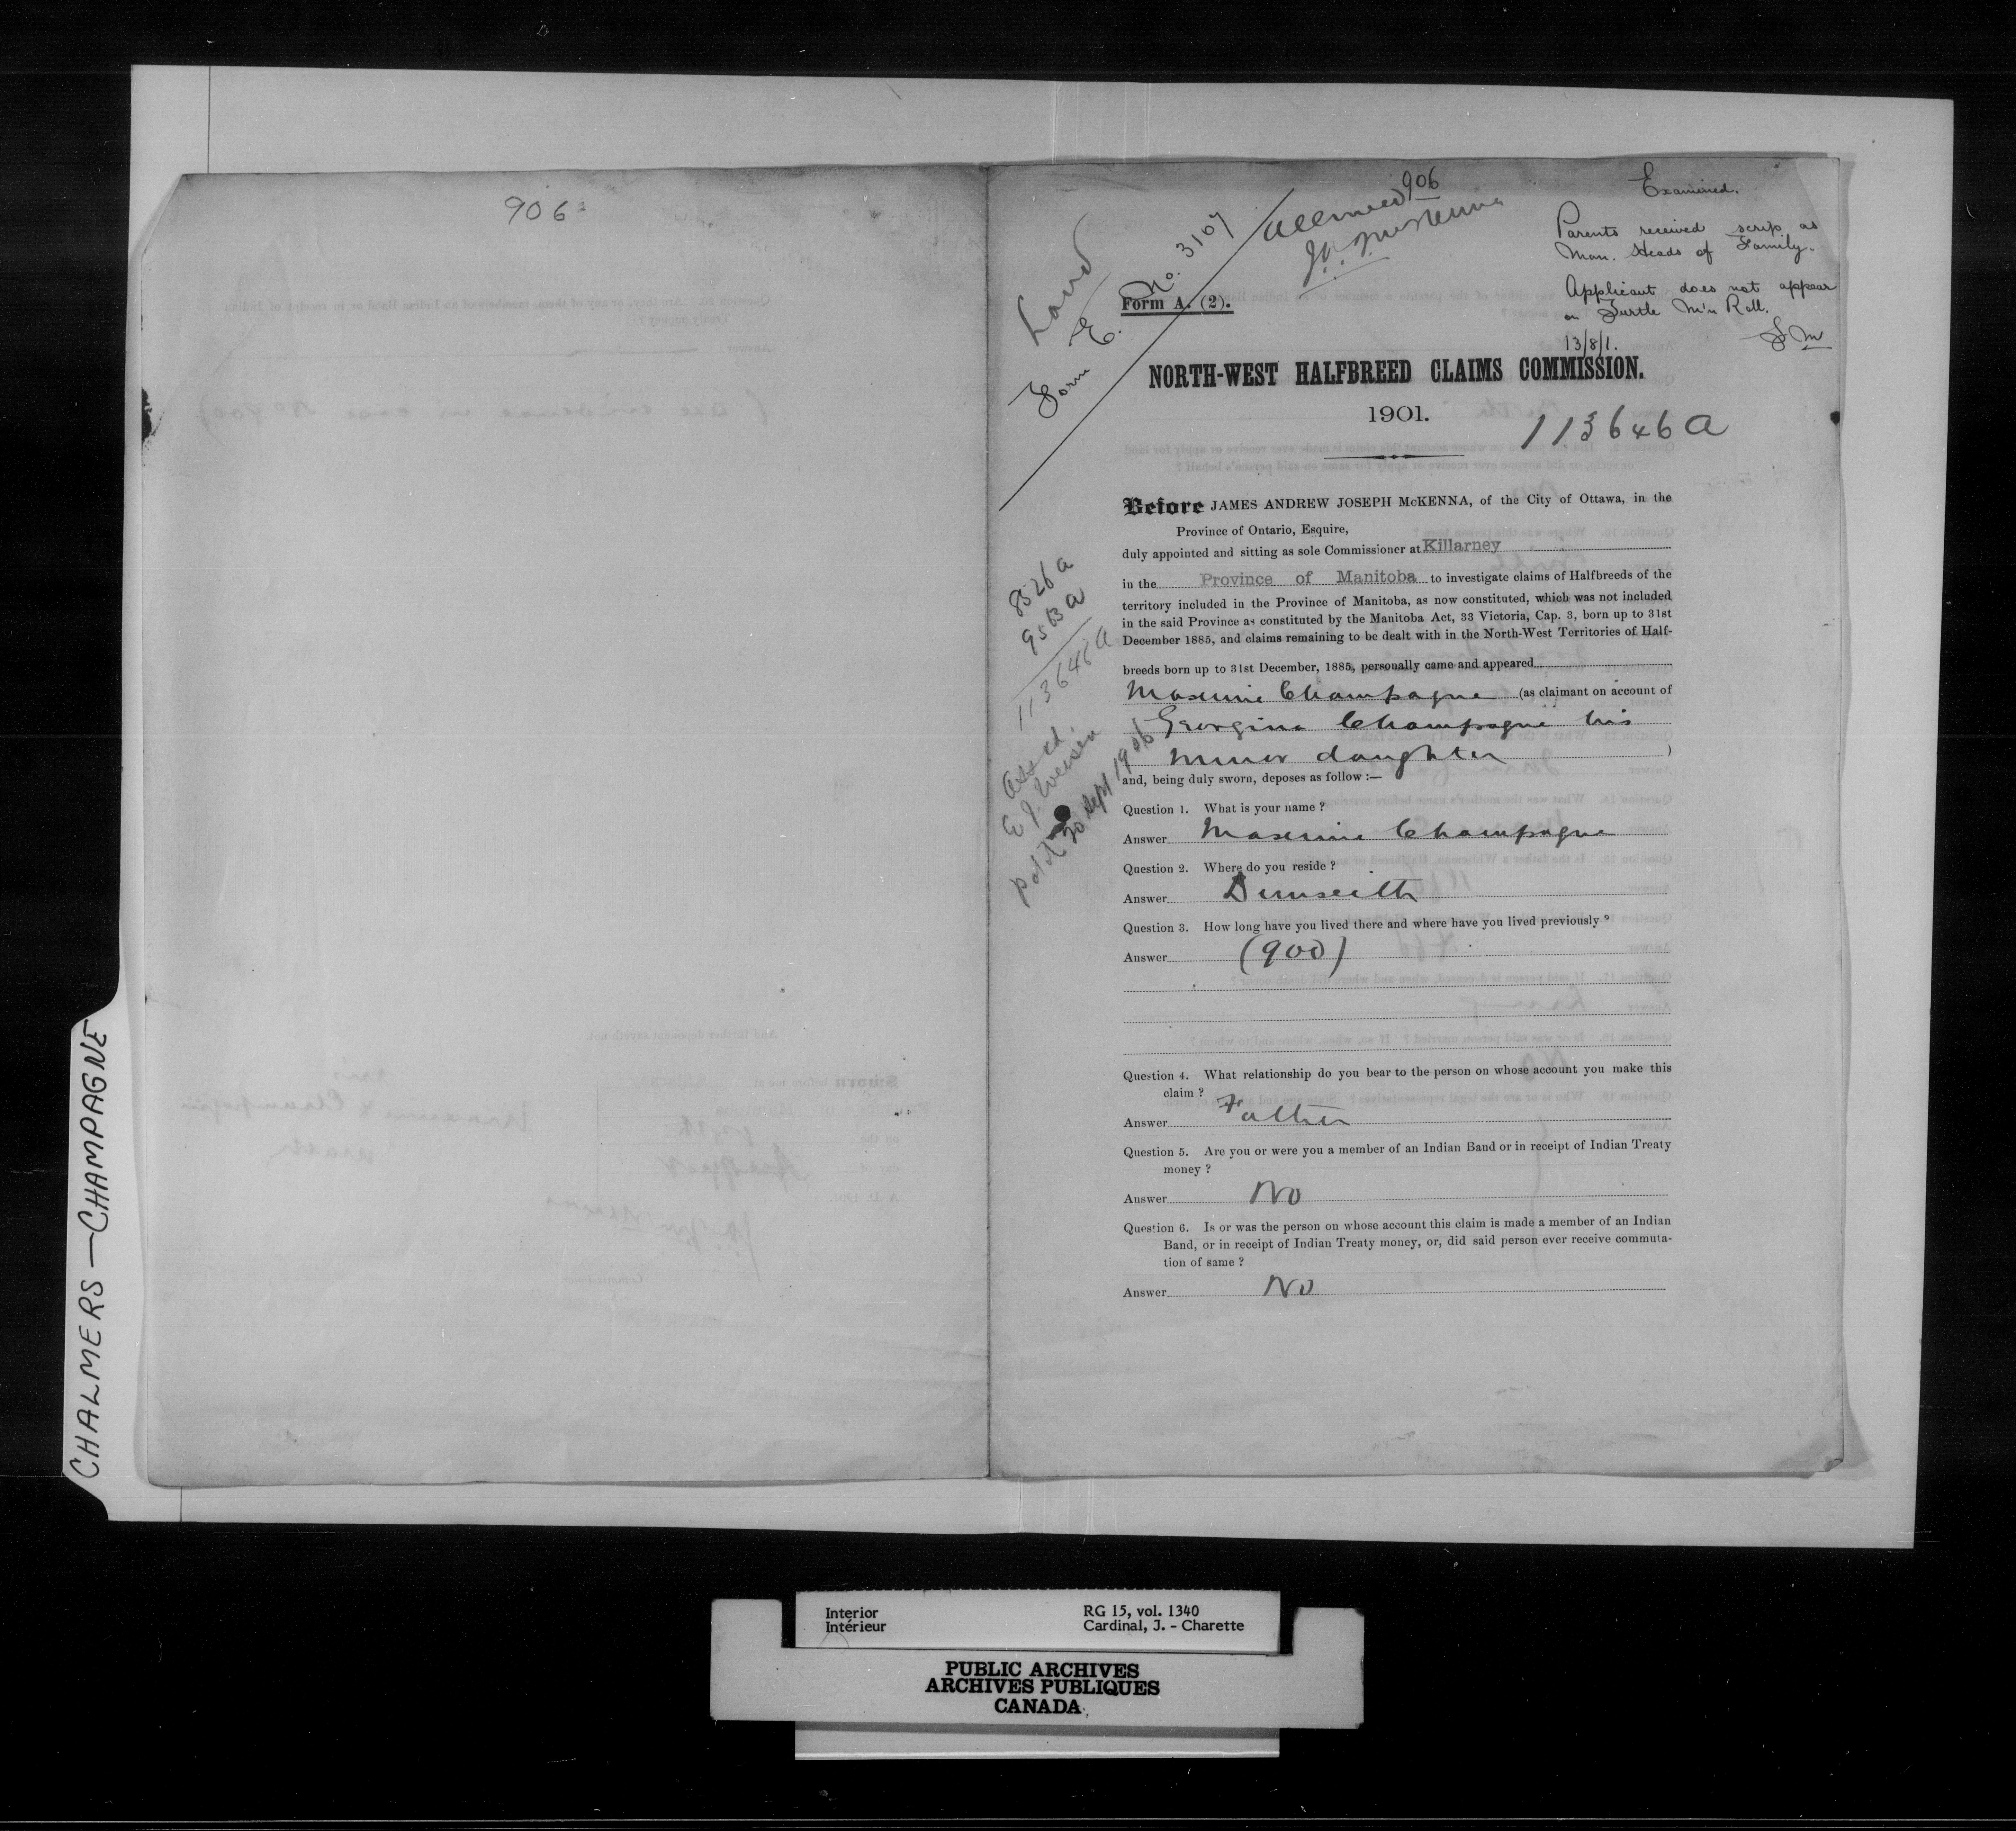 906
906
Allowed
Examined.
Parents received scrip as
Man. Heads of Family.
Applicant does not appear
on Turtle M'n Roll.
13/8/1.
Land
Form E. No. 3107
Form A. (2).
NORTH-WEST HALFBREED CLAIMS COMMISSION.
1901.
113646 A
Before JAMES ANDREW JOSEPH McKENNA, of the City of Ottawa, in the
Province of Ontario, Esquire,
duly appointed and sitting as sole Commissioner at Killarney
in the Province of Manitoba to investigate claims of Halfbreeds of the
territory included in the Province of Manitoba, as now constituted, which was not included
in the said Province as constituted by the Manitoba Act, 33 Victoria, Cap. 3, born up to 31st
December 1885, and claims remaining to be dealt with in the North-West Territories of Half-
breeds born up to 31st December, 1885, personally came and appeared
Maxime Champagne (as claimant on account of
Georgina Champagne his
minor daughter )
and, being duly sworn, deposes as follow :—
Question 1. What is your name ?
Answer Maxime Champagne
Question 2. Where do you reside ?
Answer Dunseith
Question 3. How long have you lived there and where have you lived previously ?
Answer (900)
Question 4. What relationship do you bear to the person on whose account you make this
claim ?
Answer Father
Question 5. Are you or were you a member of an Indian Band or in receipt of Indian Treaty
money ?
Answer No
Question 6. Is or was the person on whose account this claim is made a member of an Indian
Band, or in receipt of Indian Treaty money, or, did said person ever receive commuta-
tion of same ?
Answer No
8526 A
9513 A
113646 A
20 Sept 1906
CHALMERS — CHAMPAGNE
Interior
Intérieur
RG 15, vol. 1340
Cardinal, J. - Charette
PUBLIC ARCHIVES
ARCHIVES PUBLIQUES
CANADA